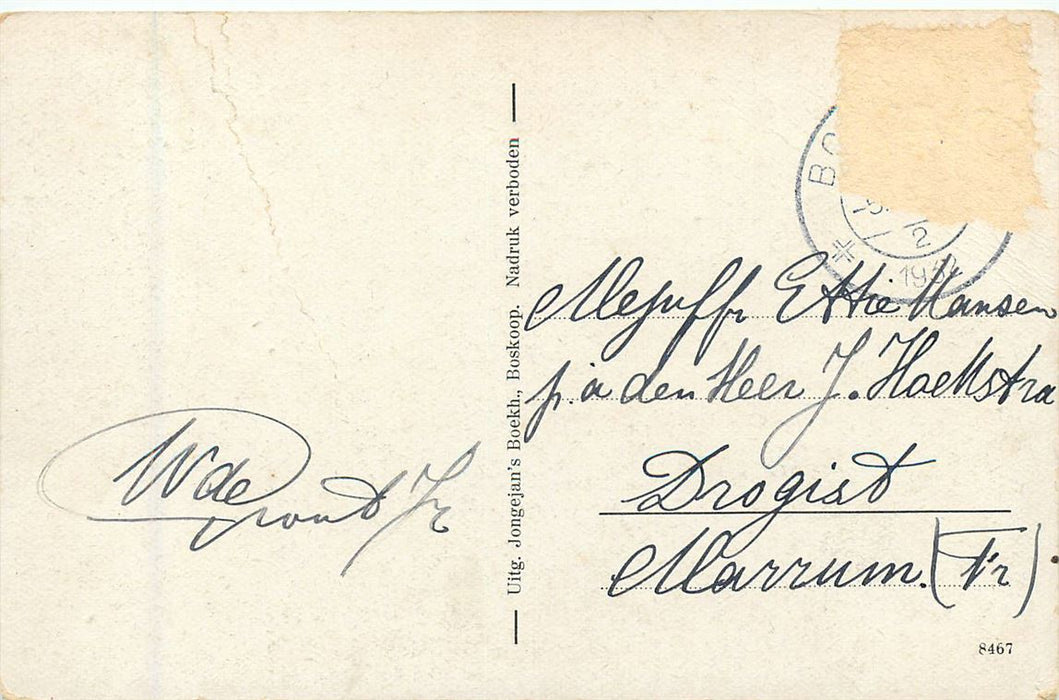 W de
Jr
Uitg. Jongejan's Boekh., Boskoop. Nadruk verboden
BO
-5
2
1932
Mejuffr Ettie Hansen
p.a den Heer J. Hoekstra
Drogist
Marrum. (Fr)
8467